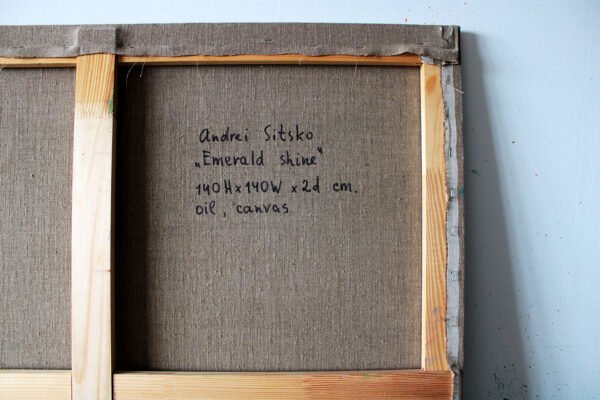 Andrei Sitsko
„Emerald shine"
140H x 140W x 2d cm.
oil, canvas